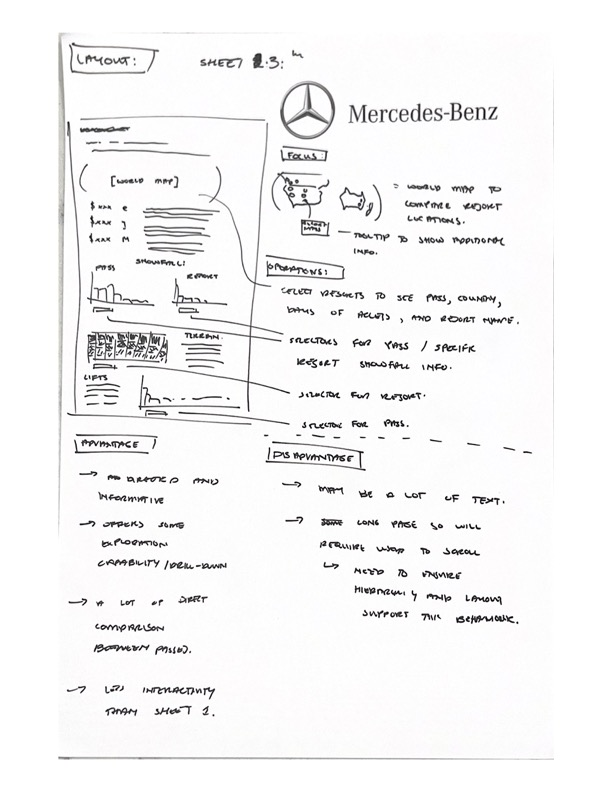 LAYOUT:
SHEET 3:
Mercedes-Benz
FOCUS:
[WORLD MAP]
= WORLD MAP TO
COMPARE RESORT
LOCATIONS.
— TOOLTIP TO SHOW ADDITIONAL
INFO.
$xxx E
$xxx J
$xxx M
OPERATIONS:
SNOWFALL:
PASS
RESORT
SELECT RESORTS TO SEE PASS, COUNTRY,
DAYS OF ACCESS, AND RESORT NAME.
SELECTORS FOR PASS / SPECIFIC
RESORT SNOWFALL INFO.
TERRAIN
LIFTS
SELECTOR FOR RESORT.
SELECTOR FOR PASS.
ADVANTAGE
→ AND
INFORMATIVE
→ OFFERS SOME
EXPLORATION
CAPABILITY/DRILL-DOWN
→ A LOT OF DIRECT
COMPARISON
BETWEEN PASSES.
→ LESS INTERACTIVITY
THAN SHEET 1.
DISADVANTAGE
→ MAY BE A LOT OF TEXT.
→ LONG PAGE SO WILL
REQUIRE USER TO SCROLL
↳ NEED TO ENSURE
HIERARCHY AND LAYOUT
SUPPORT THIS BEHAVIOUR.